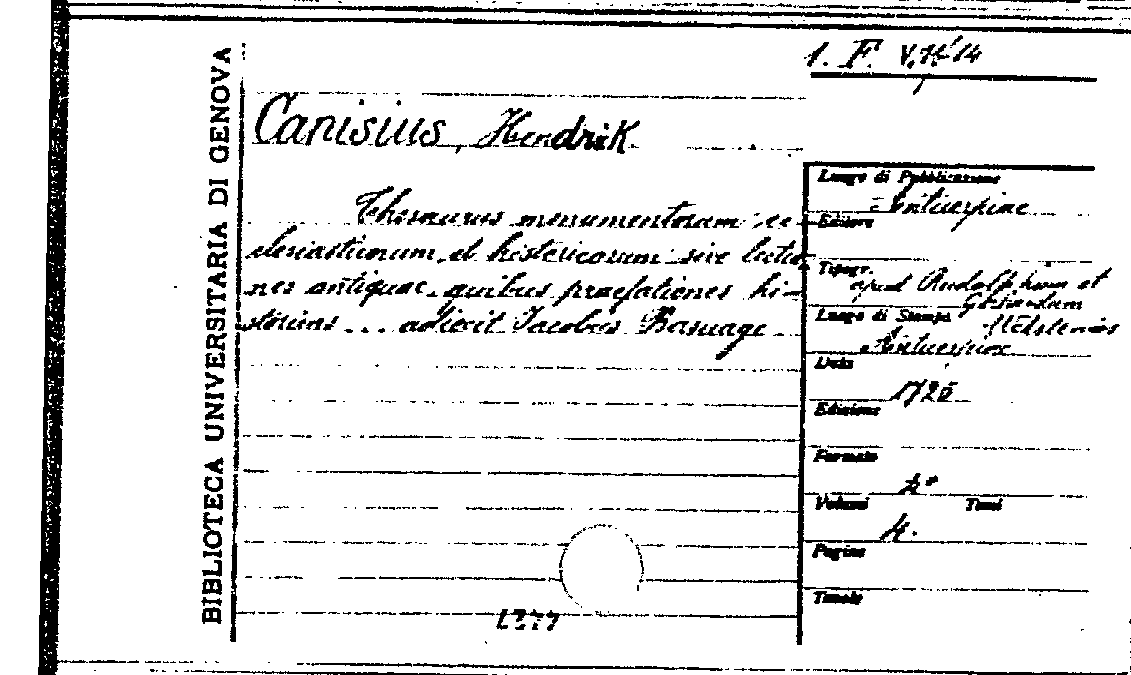 1. F. V, 11-14
BIBLIOTECA UNIVERSITARIA DI GENOVA
Canisius, Hendrik.
Thesaurus monumentorum ec-
clesiasticorum et historicorum sive lectio-
nes antiquae, quibus praefationes hi-
storicas ... adiecit Jacobus Basnage
Luogo di Pubblicazione
Antuerpiae
Editore
Tipogr. apud Rudolphum et
Gerardum
Wetstenios
Luogo di Stampa
Antuerpiae
Data
1725
Edizione
Formato
2°
Volumi Tomi
4.
Pagine
Tavole